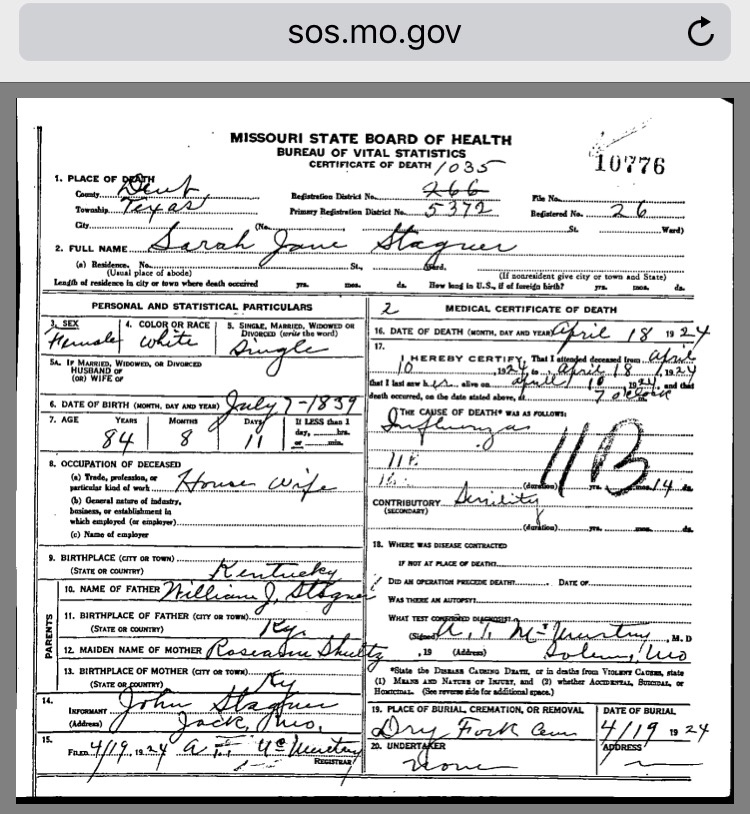 sos.mo.gov
MISSOURI STATE BOARD OF HEALTH
BUREAU OF VITAL STATISTICS
CERTIFICATE OF DEATH 1035
10776
1. PLACE OF DEATH
County Dent Registration District No. 266 File No.
Township Texas Primary Registration District No. 5372 Registered No. 26
City (No. St. Ward)
2. FULL NAME Sarah Jane Stagner
(a) Residence. No. St., Ward.
(Usual place of abode) (If nonresident give city or town and State)
Length of residence in city or town where death occurred yrs. mos. ds. How long in U.S., if of foreign birth? yrs. mos. ds.
PERSONAL AND STATISTICAL PARTICULARS
3. SEX 4. COLOR OR RACE 5. SINGLE, MARRIED, WIDOWED OR DIVORCED (write the word)
Female White Single
5A. IF MARRIED, WIDOWED, OR DIVORCED
HUSBAND OF
(OR) WIFE OF
6. DATE OF BIRTH (MONTH, DAY AND YEAR) July 7-1839
7. AGE YEARS MONTHS DAYS If LESS than 1 day, hrs. or min.
84 8 11
8. OCCUPATION OF DECEASED
(a) Trade, profession, or
particular kind of work House wife
(b) General nature of industry,
business, or establishment in
which employed (or employer)
(c) Name of employer
9. BIRTHPLACE (CITY OR TOWN)
(STATE OR COUNTRY) Kentucky
PARENTS
10. NAME OF FATHER William J. Stagner
11. BIRTHPLACE OF FATHER (CITY OR TOWN)
(STATE OR COUNTRY) Ky.
12. MAIDEN NAME OF MOTHER Roseanne Shultz
13. BIRTHPLACE OF MOTHER (CITY OR TOWN)
(STATE OR COUNTRY) Ky
14.
INFORMANT John Stagner
(Address) Jack, Mo.
15.
FILED 4/19, 1924 McMurtrey
REGISTRAR
2 MEDICAL CERTIFICATE OF DEATH
16. DATE OF DEATH (MONTH, DAY AND YEAR) April 18 1924
17.
I HEREBY CERTIFY, That I attended deceased from April
10, 1924, to April 18, 1924
that I last saw her alive on April 10, 1924, and that
death occurred, on the date stated above, at 7 oclock
THE CAUSE OF DEATH* WAS AS FOLLOWS:
Influenza
11B
(duration) yrs. mos. 14 ds.
CONTRIBUTORY Senility
(SECONDARY)
(duration) yrs. mos. ds.
18. WHERE WAS DISEASE CONTRACTED
IF NOT AT PLACE OF DEATH?
DID AN OPERATION PRECEDE DEATH? DATE OF
WAS THERE AN AUTOPSY?
WHAT TEST CONFIRMED DIAGNOSIS?
(Signed) McMurtrey, M.D
, 19 (Address) Salem, Mo
*State the DISEASE CAUSING DEATH, or in deaths from VIOLENT CAUSES, state
(1) MEANS AND NATURE OF INJURY, and (2) whether ACCIDENTAL, SUICIDAL, or
HOMICIDAL. (See reverse side for additional space.)
19. PLACE OF BURIAL CREMATION, OR REMOVAL DATE OF BURIAL
Dry Fork Cem 4/19 1924
20. UNDERTAKER ADDRESS
None